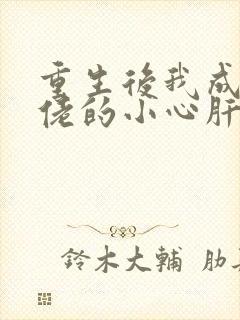 重生後我成
佬的小心肝
鈴木大輔 肋